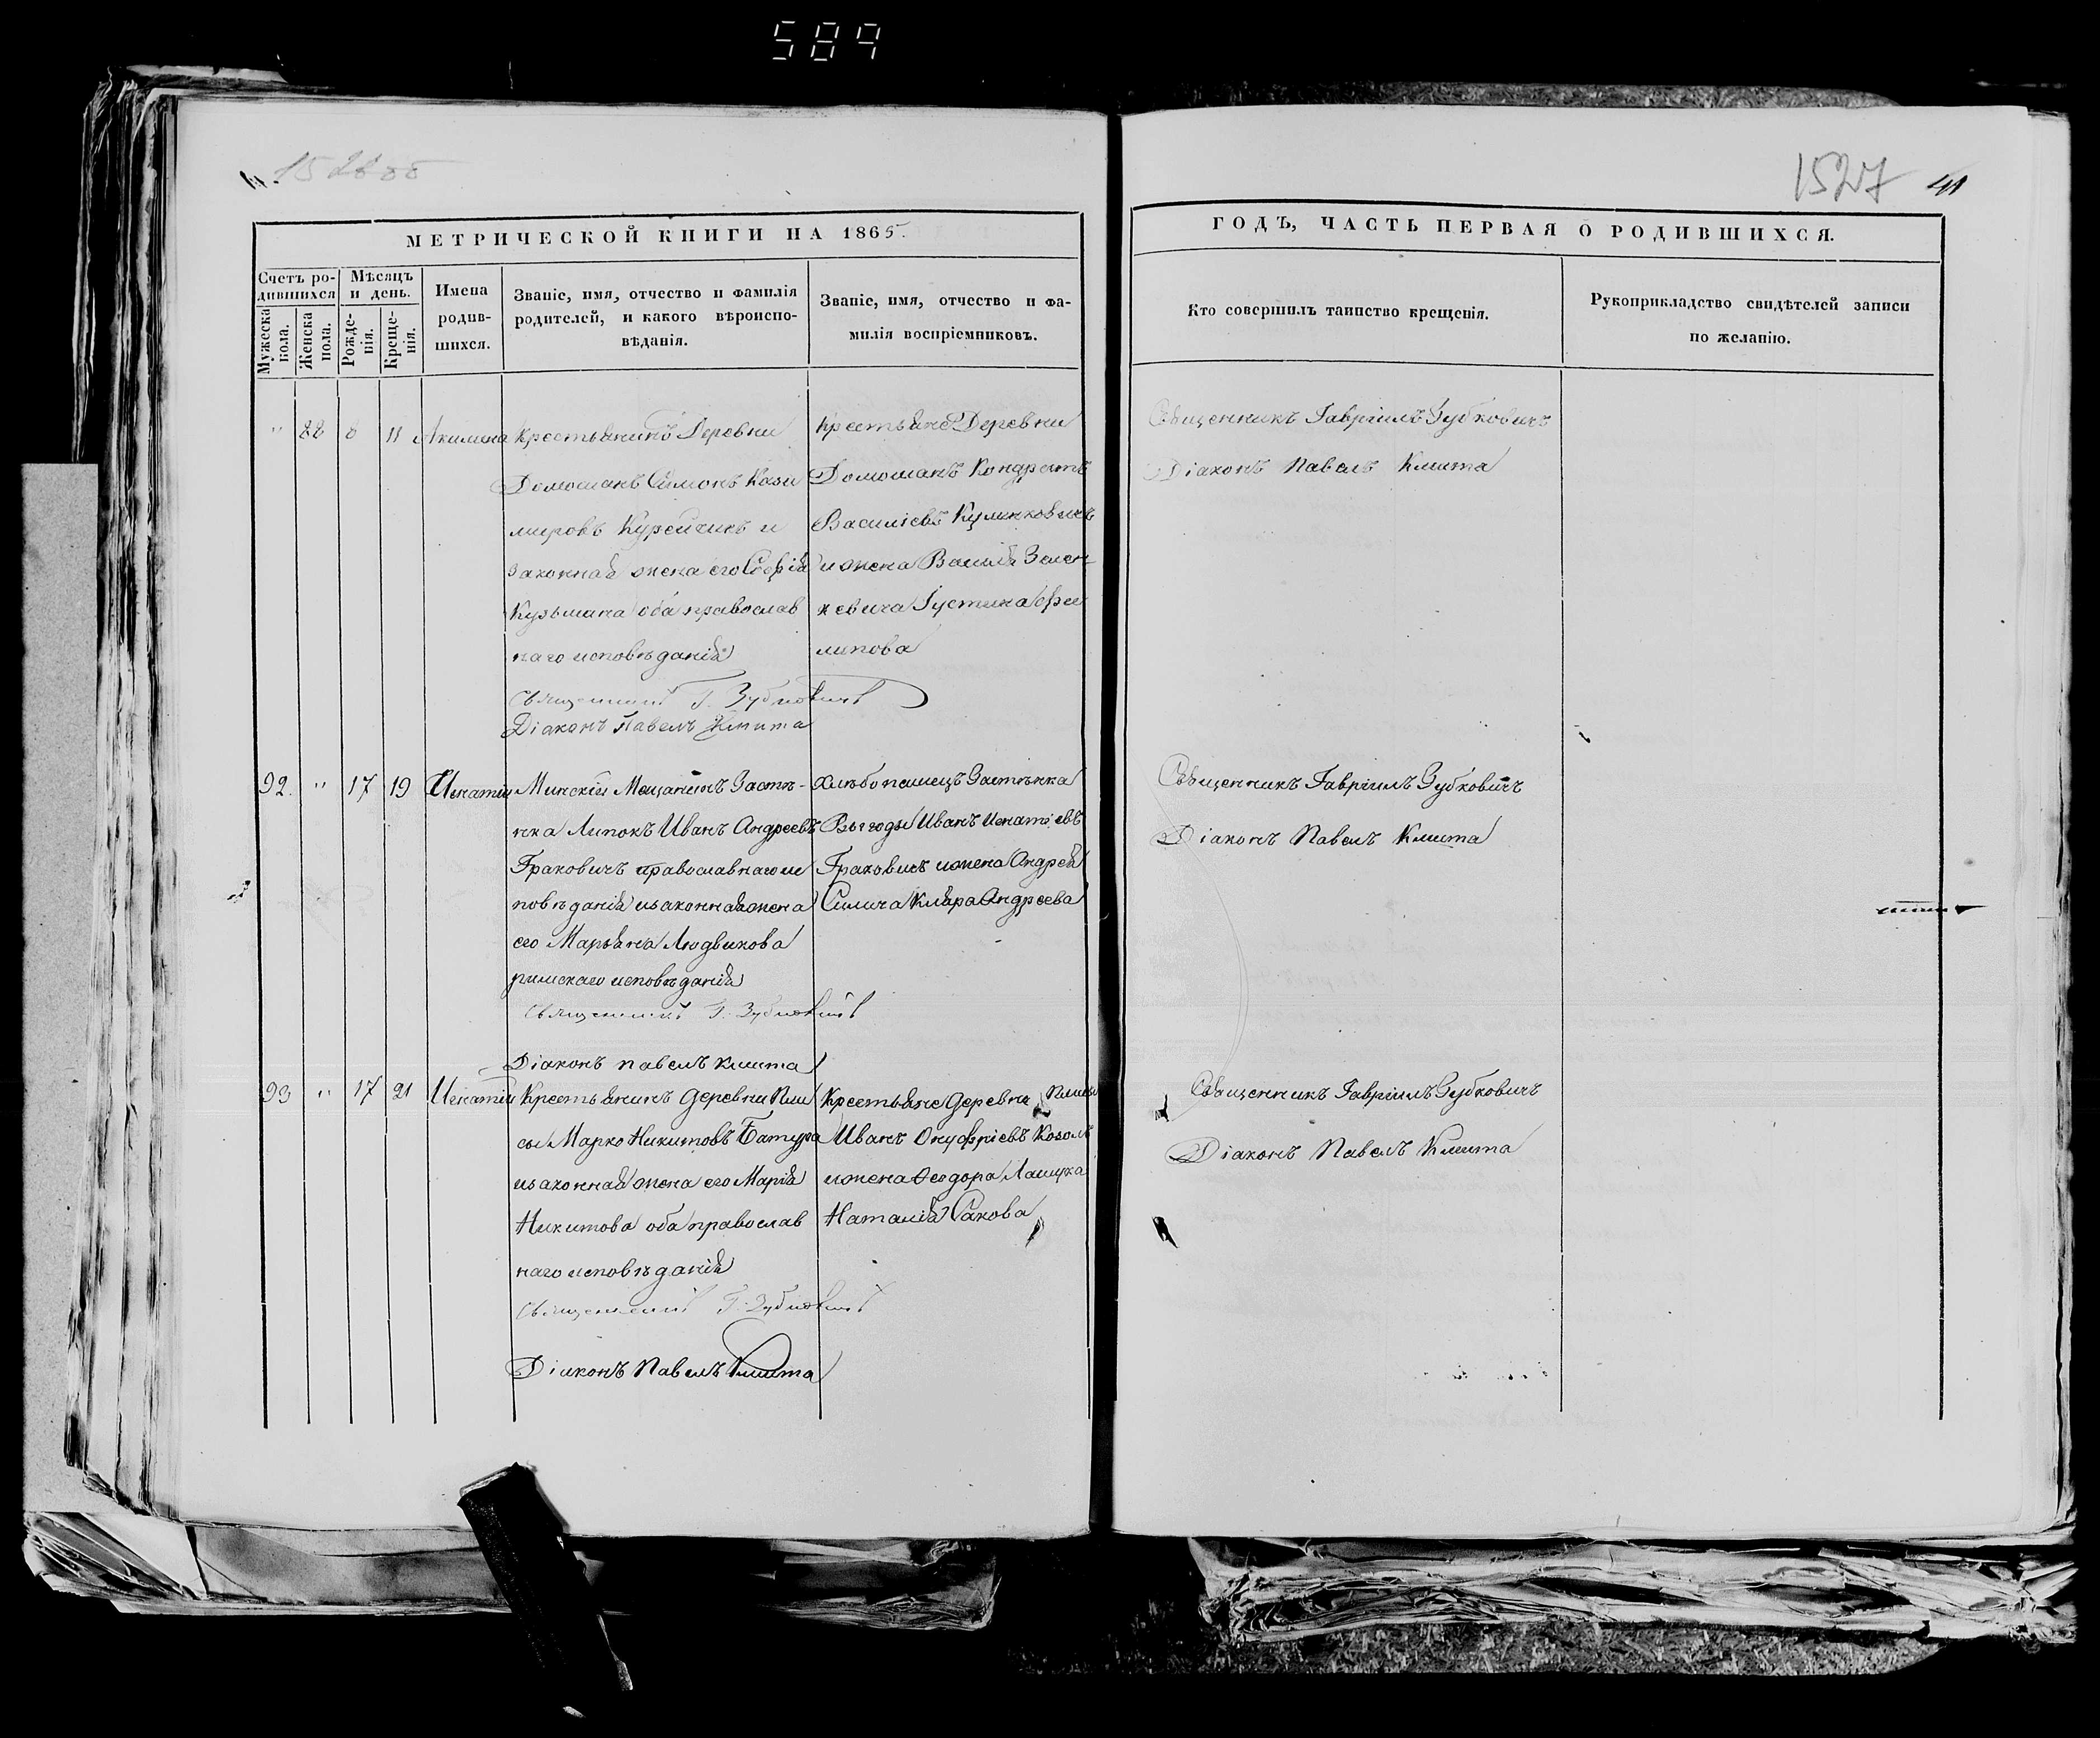 584
1527 41
МЕТРИЧЕСКОЙ КНИГИ НА 1865.
Счетъ родившихся
Мѣсяцъ и день.
Мужеска пола.
Женска пола.
Рожденія.
Крещенія.
Имена родившихся.
Званіе, имя, отчество и фамилія
родителей, и какого вѣроиспо-
вѣданія.
Званіе, имя, отчество и фа-
милія воспріемниковъ.
" 88 8 11 Акилина
Крестьянинъ Деревни
Домошанъ Симонъ Кази
мировъ Курейчикъ и
законная жена его Софія
Кузьмина оба православ
наго исповѣданія
Священникъ Г. Зубковичъ
Діаконъ Павелъ Кмита
Крестьяне Деревни
Домошанъ Кондратъ
Василіевъ
и жена Василія Зень-
кевича Іустина Фи
липова
92. " 17 19 Игнатій
Минскій Мещанинъ Застѣ-
нка Липокъ Иванъ Андреевъ
Граковичъ православнаго ис
повѣданія и законная жена
его Марьяна Людвикова
римскаго исповѣданія
Священникъ Г. Зубковичъ
Діаконъ Павелъ Кмита
Хлѣбопашецъ Застѣнка
Выгоды Иванъ Игнатіевъ
Граковичъ и жена Андрея
Силича Клара Андреева
93 " 17 21 Игнатій
Крестьянинъ деревни
сы Марко Никитовъ Батура
и законная жена его Марія
Никитова оба православ
наго исповѣданія
Священникъ Г. Зубковичъ
Діаконъ Павелъ Кмита
Крестьяне деревни
Иванъ Онуфріевъ Козелъ
и жена Ѳеодора Лашука
Наталія Сакова
ГОДЪ, ЧАСТЬ ПЕРВАЯ О РОДИВШИХСЯ.
Кто совершилъ таинство крещенія.
Рукоприкладство свидѣтелей записи
по желанію.
Священникъ Гавріилъ Зубковичъ
Діаконъ Павелъ Кмита
Священникъ Гавріилъ Зубковичъ
Діаконъ Павелъ Кмита
Священникъ Гавріилъ Зубковичъ
Діаконъ Павелъ Кмита